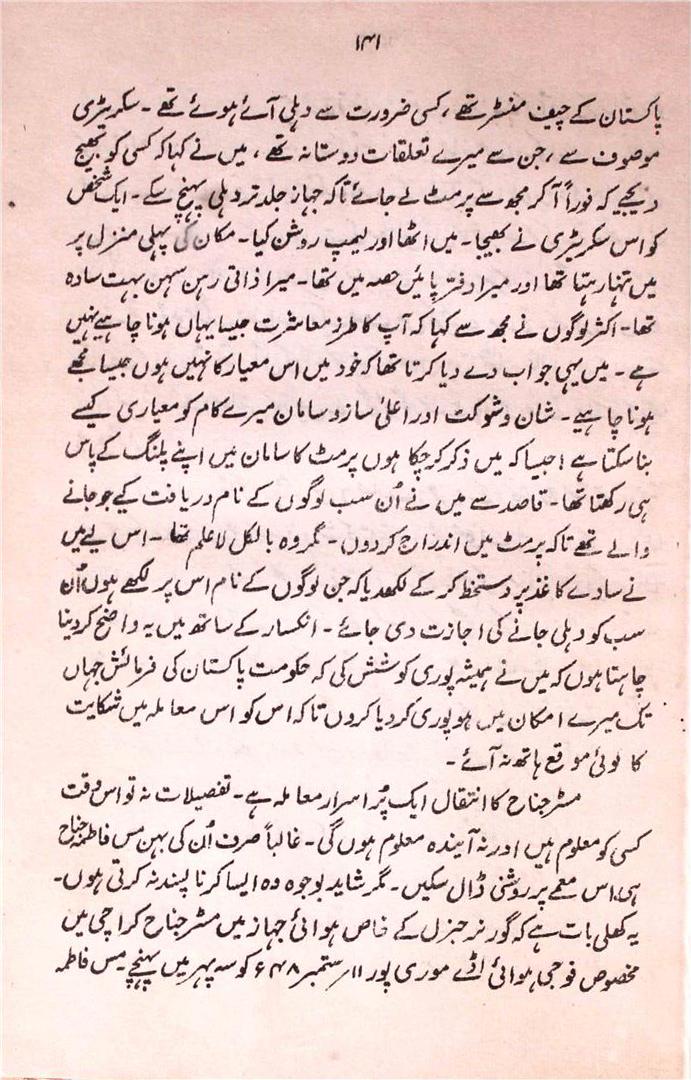 ۱۴۱
پاکستان کے چیف منسٹر تھے ، کسی ضرورت سے دہلی آئے ہوئے تھے ۔ سکریٹری
موصوف سے ، جن سے میرے تعلقات دوستانہ تھے ، میں نے کہا کہ کسی کو بھیج
دیجیے کہ فوراً آ کر مجھ سے پرمٹ لے جائے تاکہ جہاز جلد تر دہلی پہنچ سکے ۔ ایک شخص
کو اس سکریٹری نے بھیجا ۔ میں اٹھا اور لیمپ روشن کیا ۔ مکان کی پہلی منزل پر
میں تنہا رہتا تھا اور میرا دفتر پائیں حصہ میں تھا ۔ میرا ذاتی رہن سہن بہت سادہ
تھا ۔ اکثر لوگوں نے مجھ سے کہا کہ آپ کا طرز معاشرت جیسا یہاں ہونا چاہیے نہیں
ہے ۔ میں یہی جواب دے دیا کرتا تھا کہ خود میں اس معیار کا نہیں ہوں جیسا مجھے
ہونا چاہیے ۔ شان و شوکت اور اعلیٰ ساز و سامان میرے کام کو معیاری کیسے
بنا سکتا ہے ! جیسا کہ میں ذکر کر چکا ہوں پرمٹ کا سامان میں اپنے پلنگ کے پاس
ہی رکھتا تھا ۔ قاصد سے میں نے اُن سب لوگوں کے نام دریافت کیے جو جانے
والے تھے تاکہ پرمٹ میں اندراج کر دوں ۔ مگر وہ بالکل لاعلم تھا ۔ اس لیے میں
نے سادے کاغذ پر دستخط کر کے لکھدیا کہ جن لوگوں کے نام اس پر لکھے ہوں اُن
سب کو دہلی جانے کی اجازت دی جائے ۔ انکسار کے ساتھ میں یہ واضح کر دینا
چاہتا ہوں کہ میں نے ہمیشہ پوری کوشش کی کہ حکومت پاکستان کی فرمائش جہاں
تک میرے امکان میں ہو پوری کر دیا کروں تاکہ اس کو اس معاملہ میں شکایت
کا کوئی موقع ہاتھ نہ آئے ۔
مسٹر جناح کا انتقال ایک پُر اسرار معاملہ ہے ۔ تفصیلات نہ تو اس وقت
کسی کو معلوم ہیں اور نہ آیندہ معلوم ہوں گی ۔ غالباً صرف اُن کی بہن مس فاطمہ جناح
ہی اس معمے پر روشنی ڈال سکیں ۔ مگر شاید بوجوہ وہ ایسا کرنا پسند نہ کرتی ہوں ۔
یہ کھلی بات ہے کہ گورنر جنرل کے خاص ہوائی جہاز میں مسٹر جناح کراچی میں
مخصوص فوجی ہوائی اڈے موری پور ۱۱ ستمبر ۴۸ء کو سہ پہر میں پہنچے ۔ مس فاطمہ